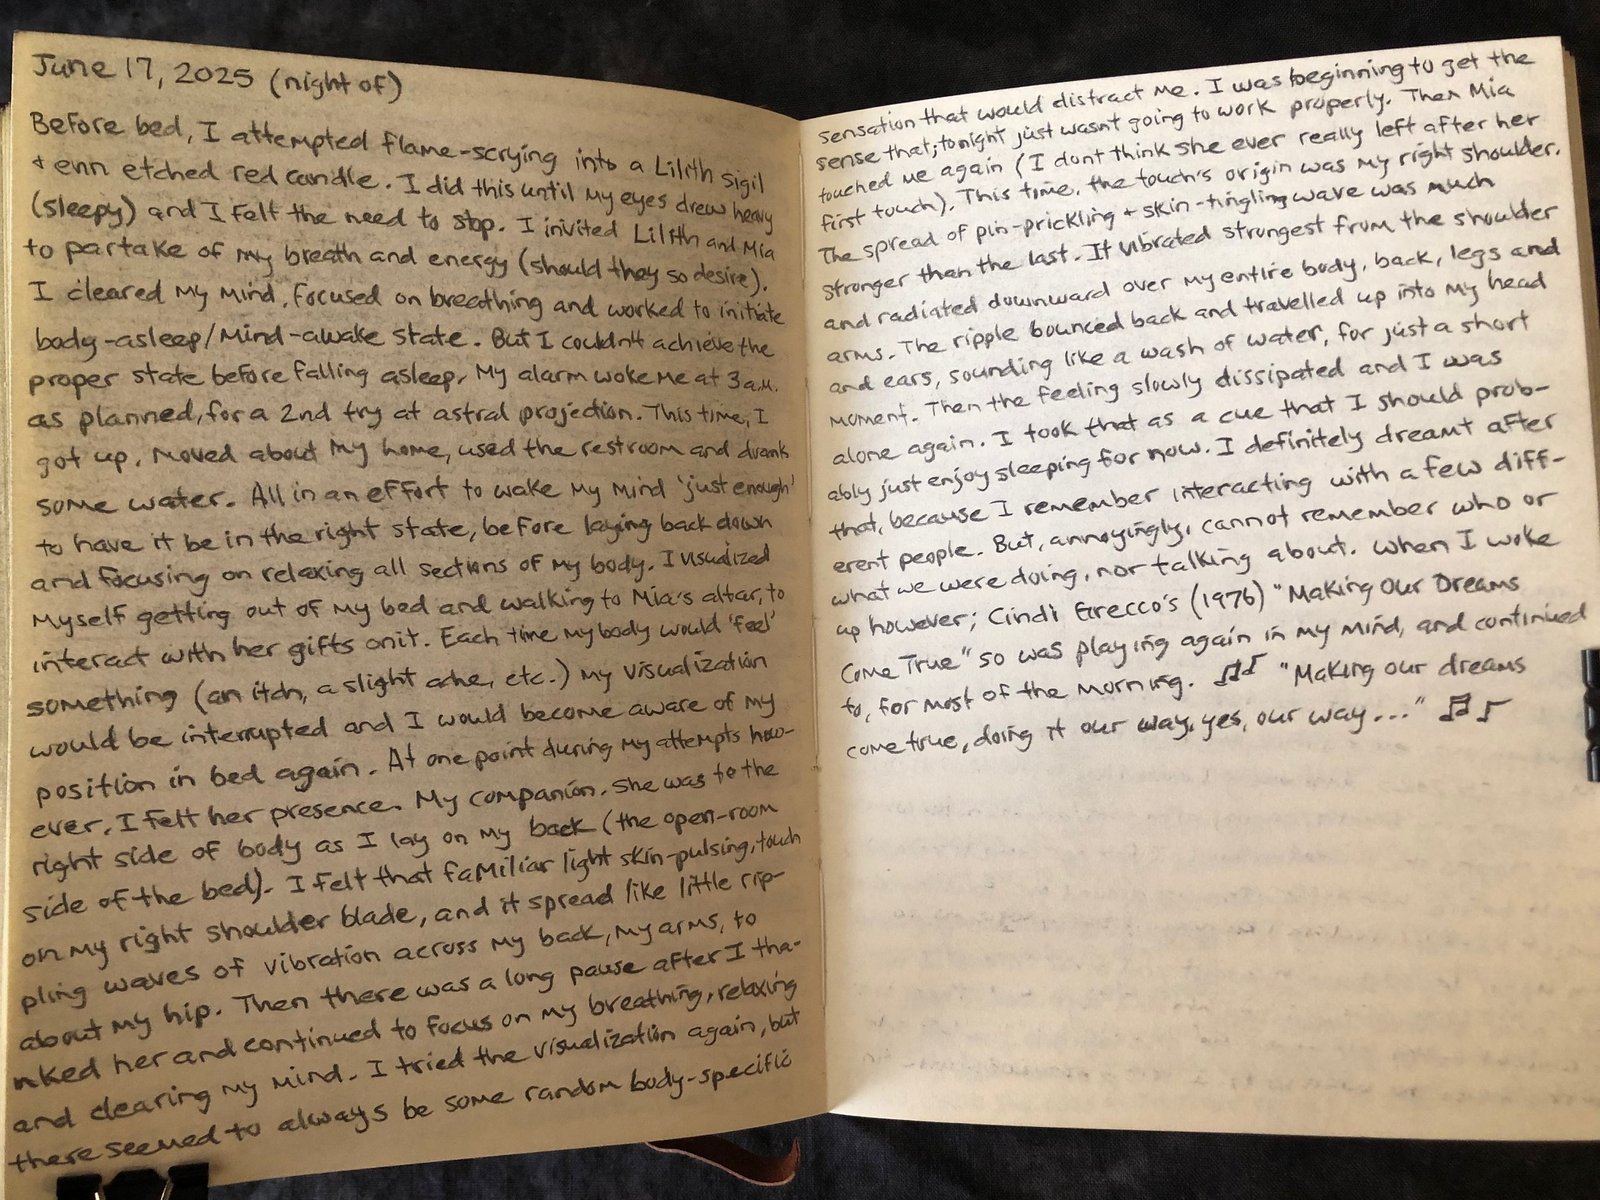 June 17, 2025 (night of)
Before bed, I attempted flame-scrying into a Lilith sigil
+ enn etched red candle. I did this until my eyes drew heavy
(sleepy) and I felt the need to stop. I invited Lilith and Mia
to partake of my breath and energy (should they so desire).
I cleared my mind, focused on breathing and worked to initiate
body-asleep/mind-awake state. But I couldn't achieve the
proper state before falling asleep. My alarm woke me at 3 a.m.
as planned, for a 2nd try at astral projection. This time, I
got up, moved about my home, used the restroom and drank
some water. All in an effort to wake my mind 'just enough'
to have it be in the right state, before laying back down
and focusing on relaxing all sections of my body. I visualized
myself getting out of my bed and walking to Mia's altar, to
interact with her gifts on it. Each time my body would 'feel'
something (an itch, a slight ache, etc.) my visualization
would be interrupted and I would become aware of my
position in bed again. At one point during my attempts how-
ever, I felt her presence. My companion. She was to the
right side of body as I lay on my back (the open-room
side of the bed). I felt that familiar light skin-pulsing, touch
on my right shoulder blade, and it spread like little rip-
pling waves of vibration across my back, my arms, to
about my hip. Then there was a long pause after I tha-
nked her and continued to focus on my breathing, relaxing
and clearing my mind. I tried the visualization again, but
there seemed to always be some random body-specific
sensation that would distract me. I was beginning to get the
sense that; tonight just wasnt going to work properly. Then Mia
touched me again (I dont think she ever really left after her
first touch). This time, the touch's origin was my right shoulder.
The spread of pin-prickling + skin-tingling wave was much
stronger than the last. It vibrated strongest from the shoulder
and radiated downward over my entire body, back, legs and
arms. The ripple bounced back and travelled up into my head
and ears, sounding like a wash of water, for just a short
moment. Then the feeling slowly dissipated and I was
alone again. I took that as a cue that I should prob-
ably just enjoy sleeping for now. I definitely dreamt after
that, because I remember interacting with a few diff-
erent people. But, annoyingly, cannot remember who or
what we were doing, nor talking about. When I woke
up however; Cindi Grecco's (1976) "Making Our Dreams
Come True" so was playing again in my mind, and continued
to, for most of the morning. ♫♪ "Making our dreams
come true, doing it our way, yes, our way..." ♫♪